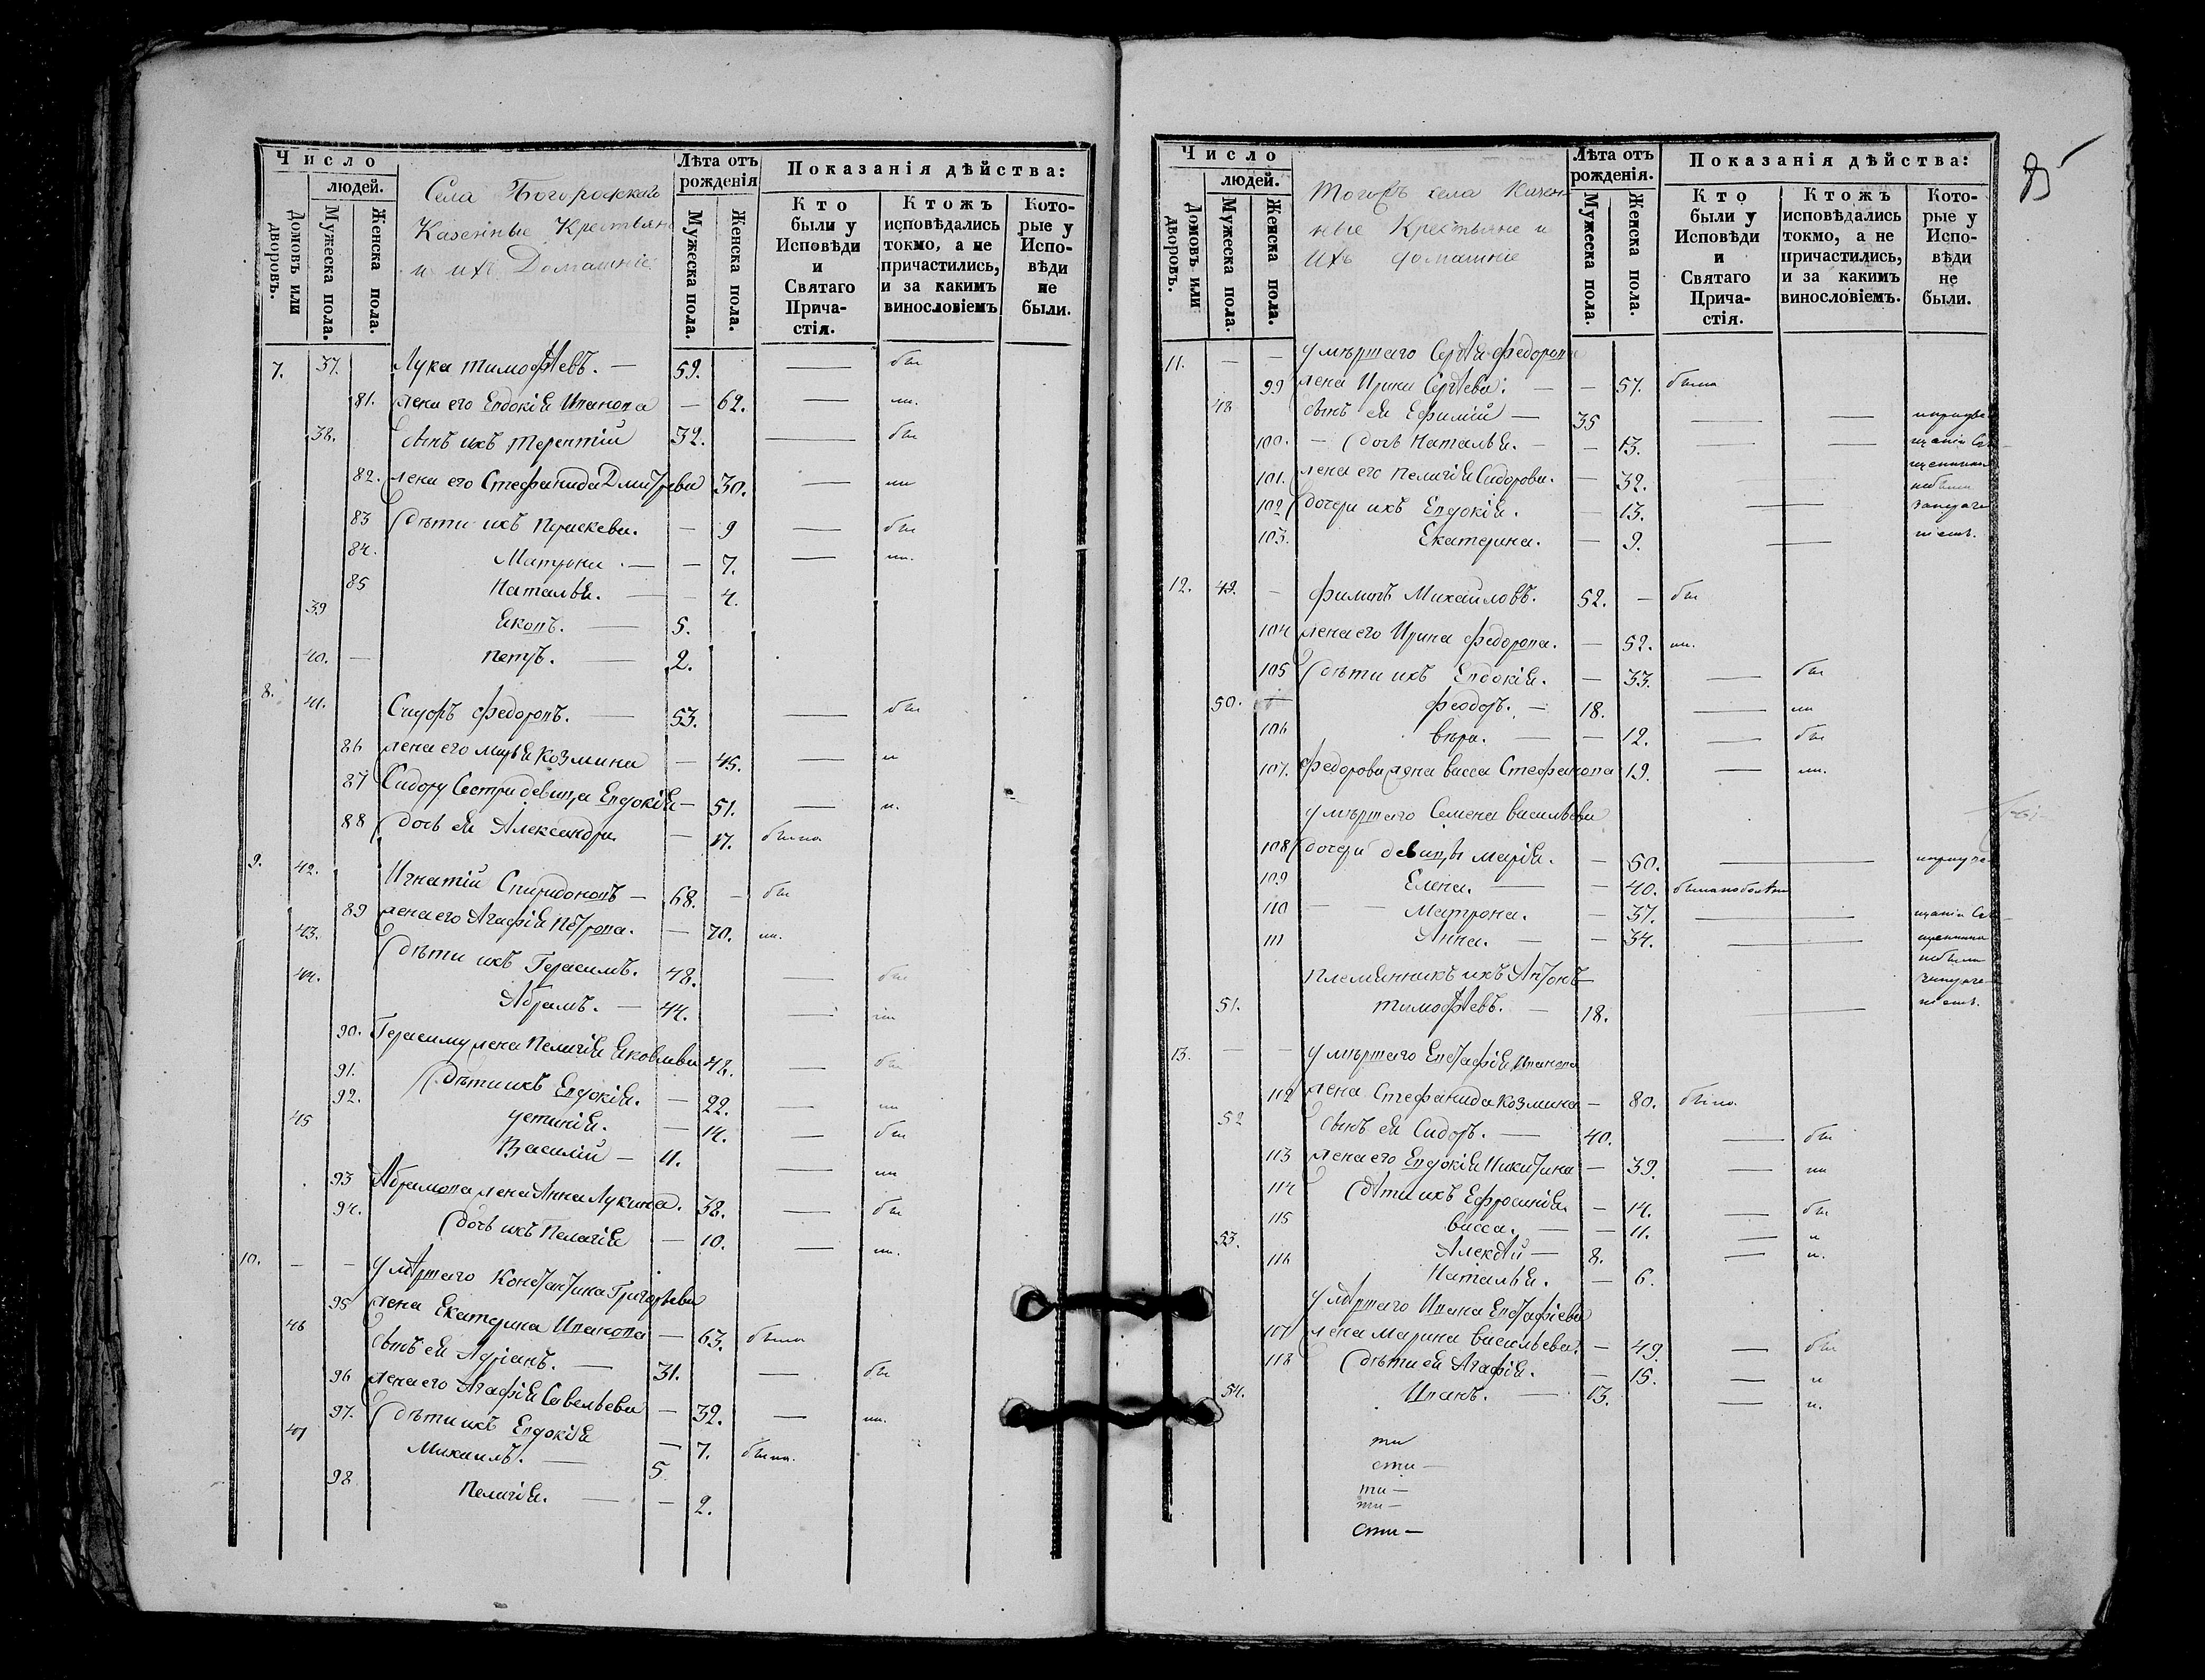 Число
людей.
Домовъ или дворовъ.
Мужеска пола.
Женска пола.
Села Богородскаго
Казенные Крестьяне
и ихъ Домашніе
Лѣта отъ рожденія
Мужеска пола.
Женска пола.
Показанія дѣйства:
Кто были у Исповѣди и Святаго Прича-стія.
Ктожъ исповѣдались токмо, а не причастились, и за какимъ винословіемъ
Кото-рые у Испо-вѣди не были.
7. 37. Лука Тимофѣевъ. — 59. — был
81. жена его Евдокія Иванова — 62. —
38. Сынъ ихъ Терентій 32. — был
82. жена его Стефанида Дмитрева 30. —
83 дѣти ихъ Параскева. — 9 — был
84. Матрона — — 7. —
85 Наталья. — 4.
39 Яковъ. — 5.
40. — Петръ. — 2.
8. 41. Сидоръ Федоровъ. — 53. — был
86 жена его Марья Козмина — 45. —
87 Сидору Сестра девица Евдокія — 51. —
88 дочь ея Александра — 17. была
9. 42. Игнатій Спиридоновъ — 68. — был
89 жена его Агафія Петрова. — 70.
43. дѣти ихъ Герасимъ. 48. — был
44. Абрамъ. — 44. —
90. Герасиму жена Пелагія Яковлева 48. — был
91. дѣти ихъ Евдокія. — 22. —
92. Устинія. — 14. — был
45 Василій — 11. —
93 Абрамова жена Анна Лукина. 38. — был
94. дочь ихъ Пелагія — 10. —
10. — — умѣршаго Константина Григорьева
95 жена Екатерина Иванова — 63. была
46 сынъ ея Адріанъ. — 31. — был
96 жена его Агафія Савельева — 32. —
97. дѣти ихъ Евдокія — 7. была.
47 Михаилъ. — 5
98 Пелагія. — — 2.
Число
людей.
Домовъ или дворовъ.
Мужеска пола.
Женска пола.
Тогожъ села Казен-
ные Крестьяне и
ихъ домашніе
Лѣта отъ рожденія.
Мужеска пола.
Женска пола.
Показанія дѣйства:
Кто были у Исповѣди и Святаго Прича-стія.
Ктожъ исповѣдались токмо, а не причастились, и за какимъ винословіемъ.
Кото-рые у Испо-вѣди не были.
11. — — умѣршаго Сергѣя Федорова
99 жена Ирина Сергѣева. — — 57. была
48 сынъ ея Ефимій — 35 — —
100. — дочь Наталья. — — 13. — —
101. жена его Пелагія Сидорова. — 32. —
102 дочери ихъ Евдокія. — 13. —
103. Екатерина. — 9. —
12. 49. — Филипъ Михайловъ. 52. — был
104 жена его Ирина Федорова. — 52.
105 дѣти ихъ Евдокія. — 33. — был
50. — Феодоръ. — 18. —
106 Вѣра. — — 12. — был
107. Федорова жена Васса Стефанова 19. —
умѣршаго Семена Васильева
108 дочери девицы Марія. — 50. —
109 Елена. — — 40.
110 — — Матрона. — 37. — —
111 Анна. — — 34. —
племянникъ ихъ Антонъ
51. Тимофѣевъ. — 18. —
13. — — умѣршаго Евстафія Иванова
112 жена Стефанида Козмина — 80. была
52 сынъ ея Сидоръ. — 40. — был
113 жена его Евдокія Никитина — 39. —
114 дѣти ихъ Ефросинія — 14. — был
115 Васса. — — 11. —
53. Алексѣй — 8. —
116 Наталья. — 6.
умѣршаго Ивана Евстафіева
117 жена Марина Васильева. — 49. — был
118 дѣти ея Агафія. — 15. —
54. Иванъ. — 13. —
ти
сти —
ти —
ти —
сти —